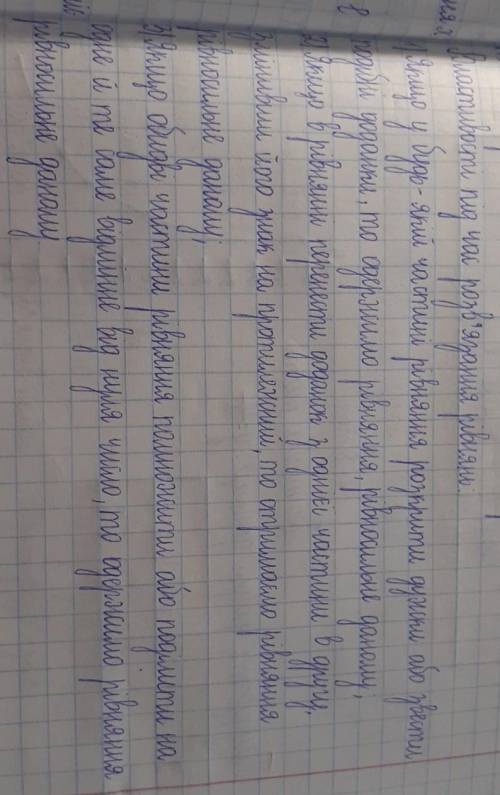 Властивості під час розв'язування рівнянь:
якщо у будь-якій частині рівняння розкрити дужки або звести
подібні доданки, то одержимо рівняння, рівносильне даному;
якщо в рівнянні перенести доданок з однієї частини в другу,
змінивши його знак на протилежний, то отримаємо рівняння
рівносильне даному;
якщо обидві частини рівняння помножити або поділити на
одне й те саме відмінне від нуля число, то одержимо рівняння
рівносильне даному